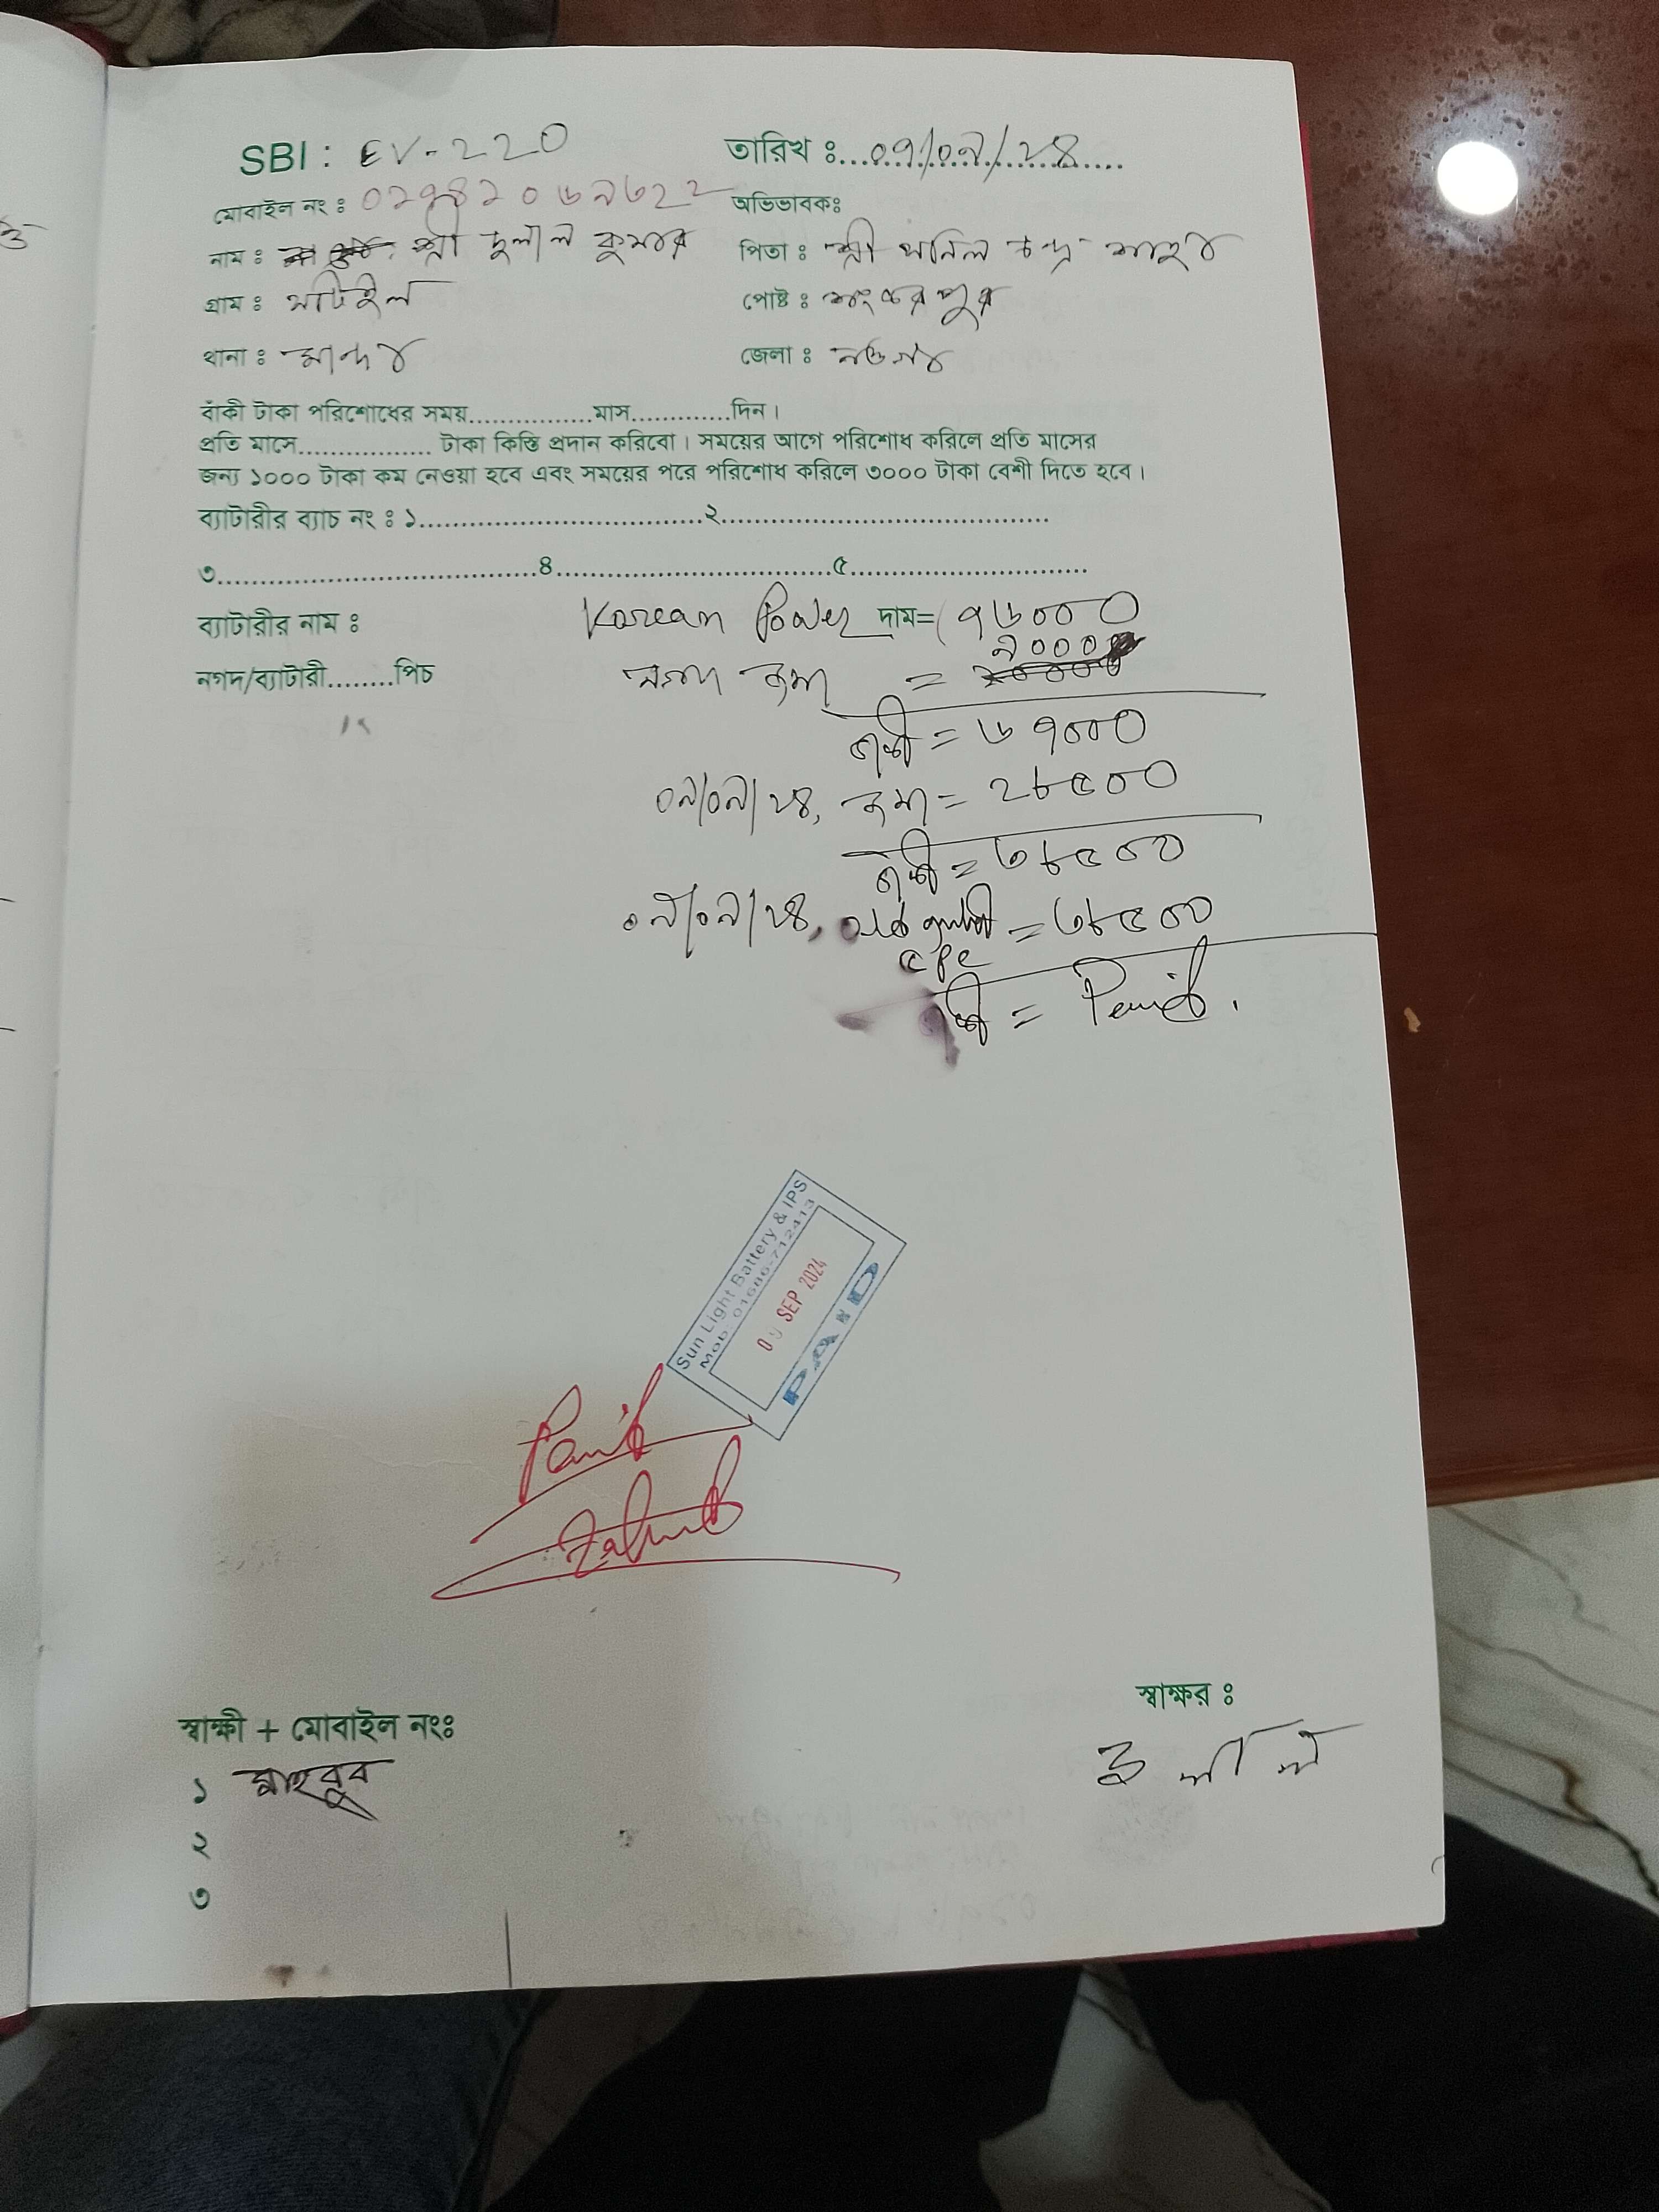 SBI : EV-220 তারিখ ঃ...০৭/০৯/২৪....
মোবাইল নং ঃ অভিভাবকঃ
নাম ঃ শ্রী দুলাল কুমার পিতা ঃ শ্রী অনিল চন্দ্র সাহা
গ্রাম ঃ পোষ্ট ঃ শংকরপুর
থানা ঃ মান্দা জেলা ঃ নওগাঁ
বাঁকী টাকা পরিশোধের সময়................মাস.............দিন।
প্রতি মাসে.................. টাকা কিস্তি প্রদান করিবো। সময়ের আগে পরিশোধ করিলে প্রতি মাসের
জন্য ১০০০ টাকা কম নেওয়া হবে এবং সময়ের পরে পরিশোধ করিলে ৩০০০ টাকা বেশী দিতে হবে।
ব্যাটারীর ব্যাচ নং ঃ ১.................................২.......................................
৩......................................৪.................................৫.............................
ব্যাটারীর নাম ঃ Korean Power দাম= ৭৬০০০
৯০০০
নগদ/ব্যাটারী........পিচ নগদ জমা =
বাকী = ৬৭০০০
০৯/০৯/২৪, জমা = ২৮৫০০
বাকী = ৩৮৫০০
০৯/০৯/২৪, পুরাতন = ৩৮৫০০
৫ Pc
বাকী = Paid.
Sun Light Battery & IPS
Mob: 01686-712413
09 SEP 2024
PAID
Paid
স্বাক্ষর ঃ
স্বাক্ষী + মোবাইল নংঃ
দুলাল
১ মাহবুব
২
৩